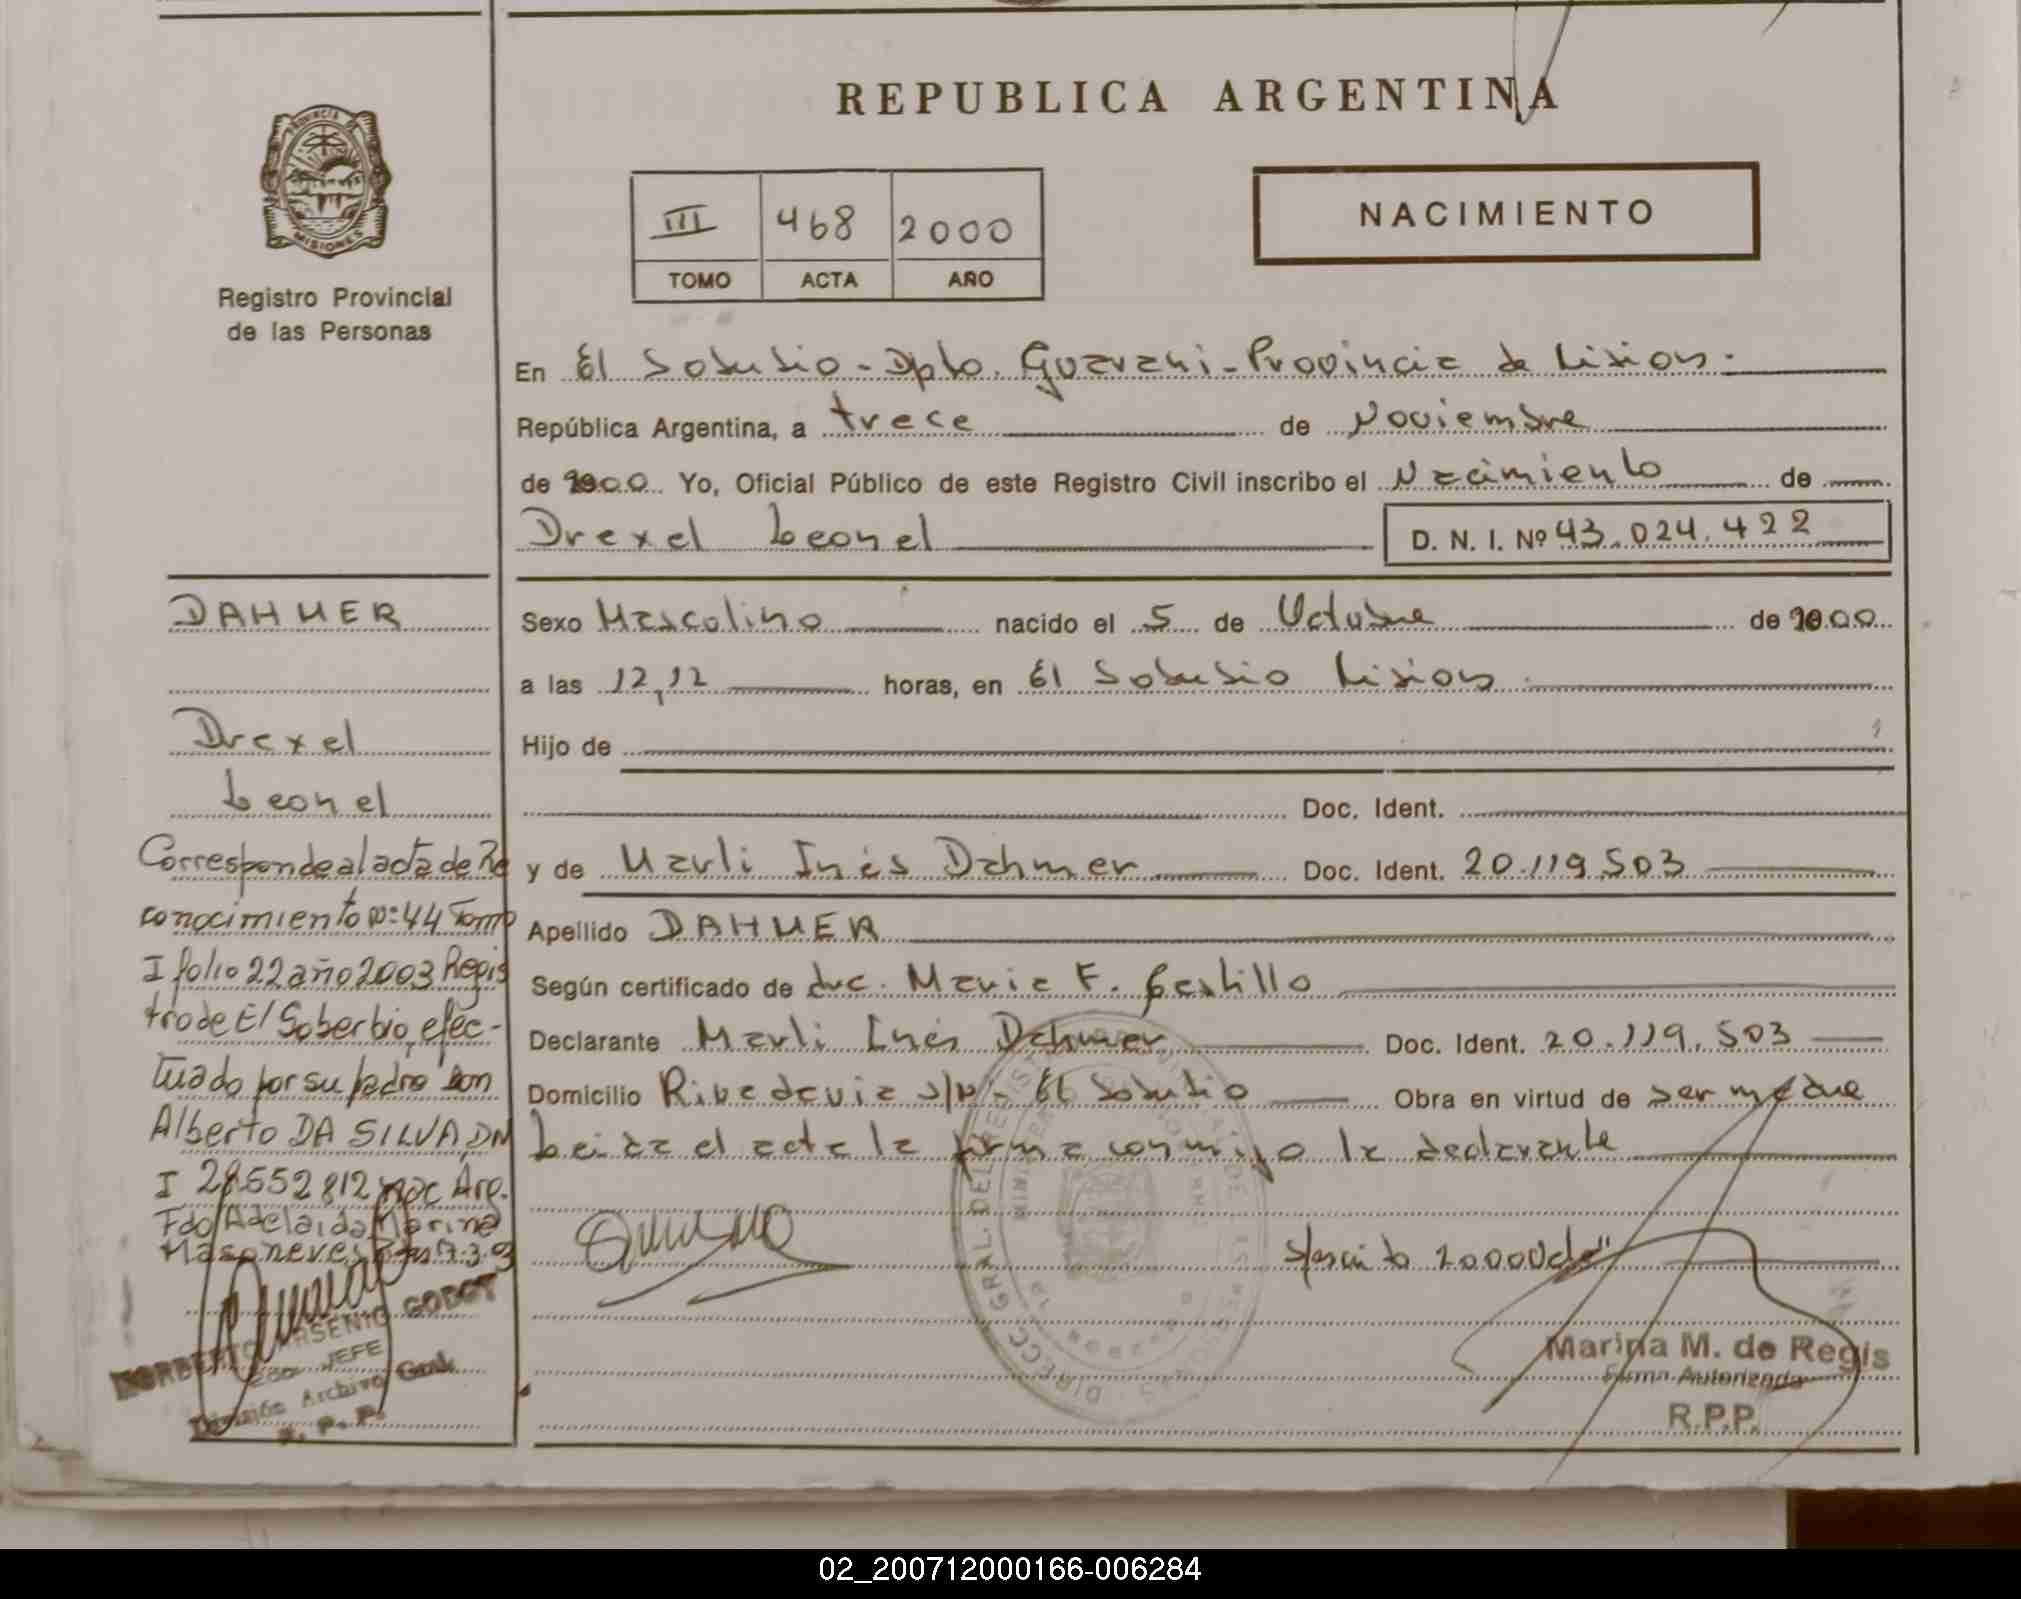 REPUBLICA ARGENTINA
PROVINCIA DE
MISIONES
Registro Provincial
de las Personas
III 468 2000
TOMO ACTA AÑO
NACIMIENTO
En El Soberbio - Dpto. Guarani - Provincia de Misiones.
República Argentina, a trece de Noviembre
de 2000 Yo, Oficial Público de este Registro Civil inscribo el Nacimiento de
Drexel Leonel D. N. I. Nº 43.024.422
DAHMER
Drexel
Leonel
Sexo Masculino nacido el 5 de Octubre de 2000
a las 12,12 horas, en El Soberbio Misiones
Hijo de
Doc. Ident.
y de Marli Inés Dahmer Doc. Ident. 20.119.503
Apellido DAHMER
Según certificado de dra. Maria F. Castillo
Declarante Marli Inés Dahmer Doc. Ident. 20.119.503
Domicilio Rivadavia s/nº El Soberbio Obra en virtud de ser madre
Leida el acta la firma conmigo la declarante
2000
Corresponde al acta de Re
conocimiento nº: 44 Tomo
I folio 22 año 2003 Regis
tro de El Soberbio, efec-
tuado por su padre Don
Alberto DA SILVA, DN
I 28.552812 nac Arg.
Fdo Adelaida Marina
17.3.03
NORBERTO ARSENIO GODOY
JEFE
División Archivo Gral.
R. P. P.
Marina M. de Regis
Firma Autorizada
R.P.P.
02_200712000166-006284